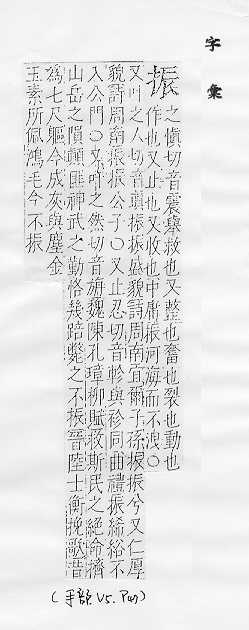 字彙
振
之愼切音震舉救也又整也奮也裂也動也
作也又止也又收也中庸振河海而不洩○
又叶之人切音眞振振盛貌詩周南宜爾子孫振振兮又仁厚
貌詩周南振振公子○又止忍切音軫與袗同曲禮振絺綌不
入公門○又叶之然切音旃魏陳孔璋柳賦救斯民之絕命擠
山岳之隕顚匪神武之勤恪幾踣斃之不振晉陸士衡挽歌昔
爲七尺軀今成灰與塵金
玉素所佩鴻毛今不振
(手部 V5.